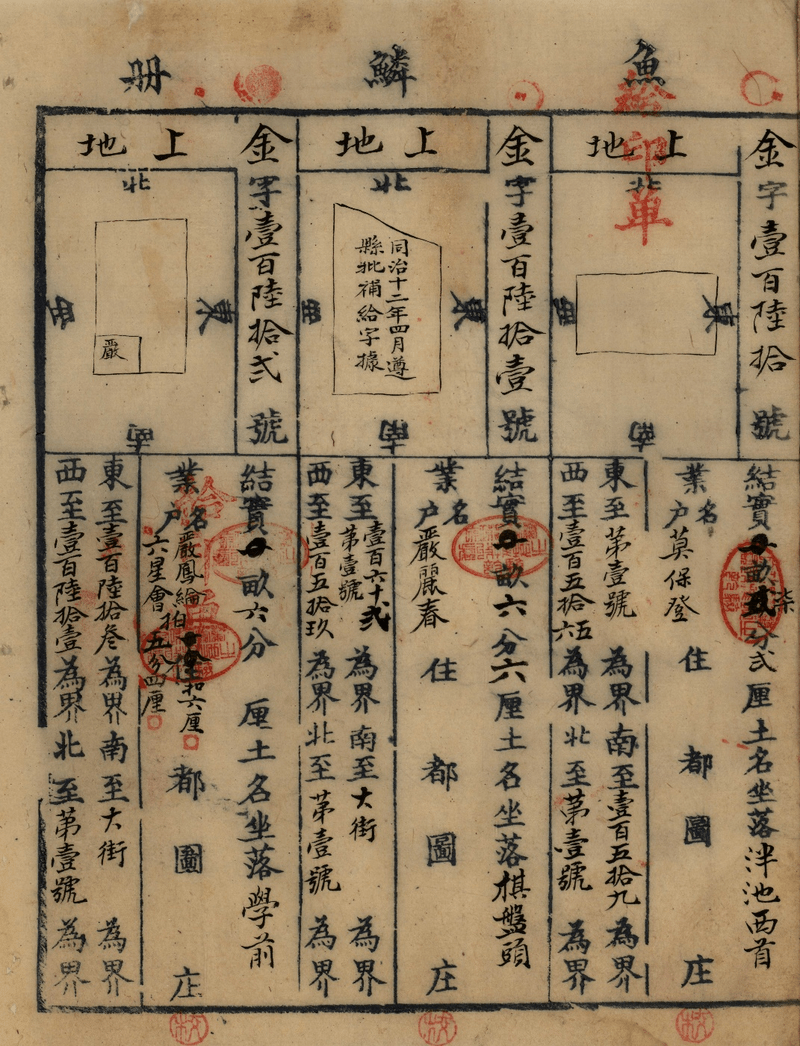 魚鱗册
上地
金字壹百陸拾號
北
東
西
南
結實畝分弍厘土名坐落泮池西首
業户名莫保登住都圖庄
東至第壹號為界南至壹百五拾九為界
西至壹百五拾六為界北至第壹號為界
上地
金字壹百陸拾壹號
北
東
西
南
同治十二年四月遵
縣批補給字據
結實畝六分六厘土名坐落棋盤頭
業户名嚴麗春住都圖庄
東至壹百六十弍第壹號為界南至大街為界
西至壹百五拾玖為界北至第壹號為界
上地
金字壹百陸拾弍號
北
東
西
南
嚴
結實畝六分厘土名坐落學前
業户名嚴鳳綸
六星會
五分四厘
都圖庄
東至壹百陸拾叁為界南至大街為界
西至壹百陸拾壹為界北至第壹號為界